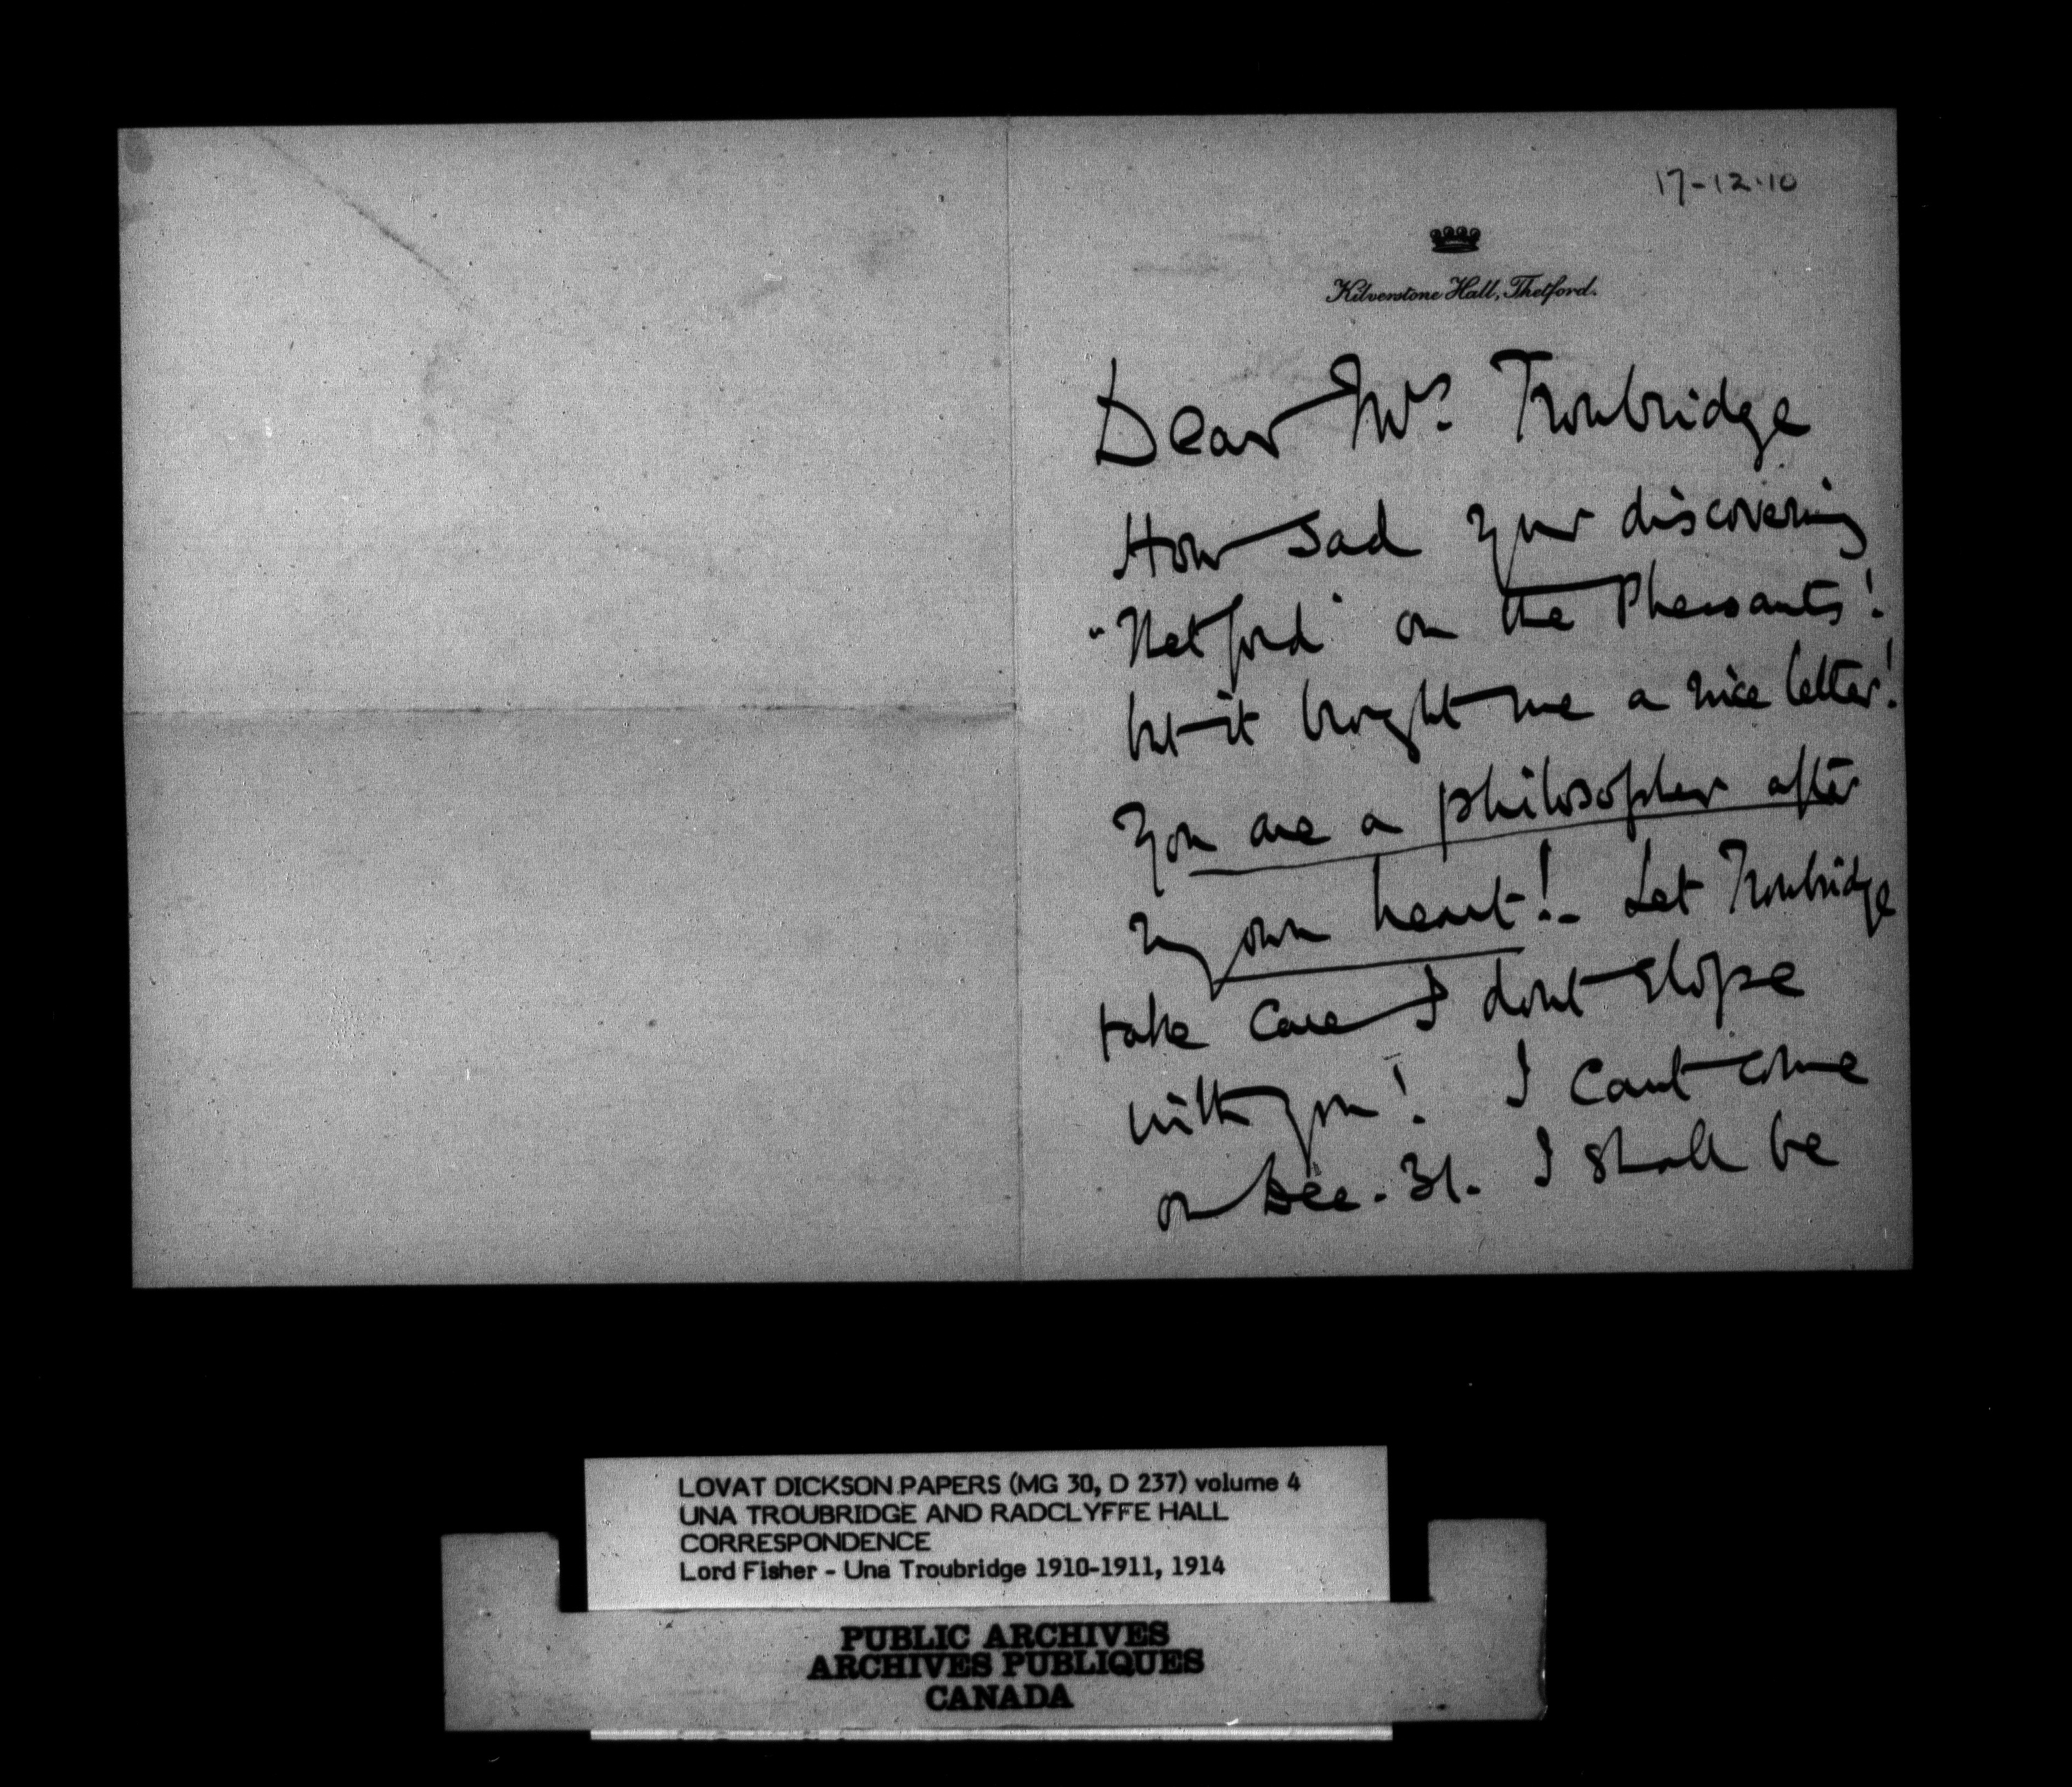 17-12-10
Kilverstone Hall, Thetford.
Dear Mrs. Troubridge
How sad your discovering
"Thetford" on the Pheasants!
but it brought me a nice letter!
You are a philosopher after
my own heart! - Let Troubridge
take care I dont elope
with you! I cant come
on Dec. 31. I shall be
LOVAT DICKSON PAPERS (MG 30, D 237) volume 4
UNA TROUBRIDGE AND RADCLYFFE HALL
CORRESPONDENCE
Lord Fisher - Una Troubridge 1910-1911, 1914
PUBLIC ARCHIVES
ARCHIVES PUBLIQUES
CANADA